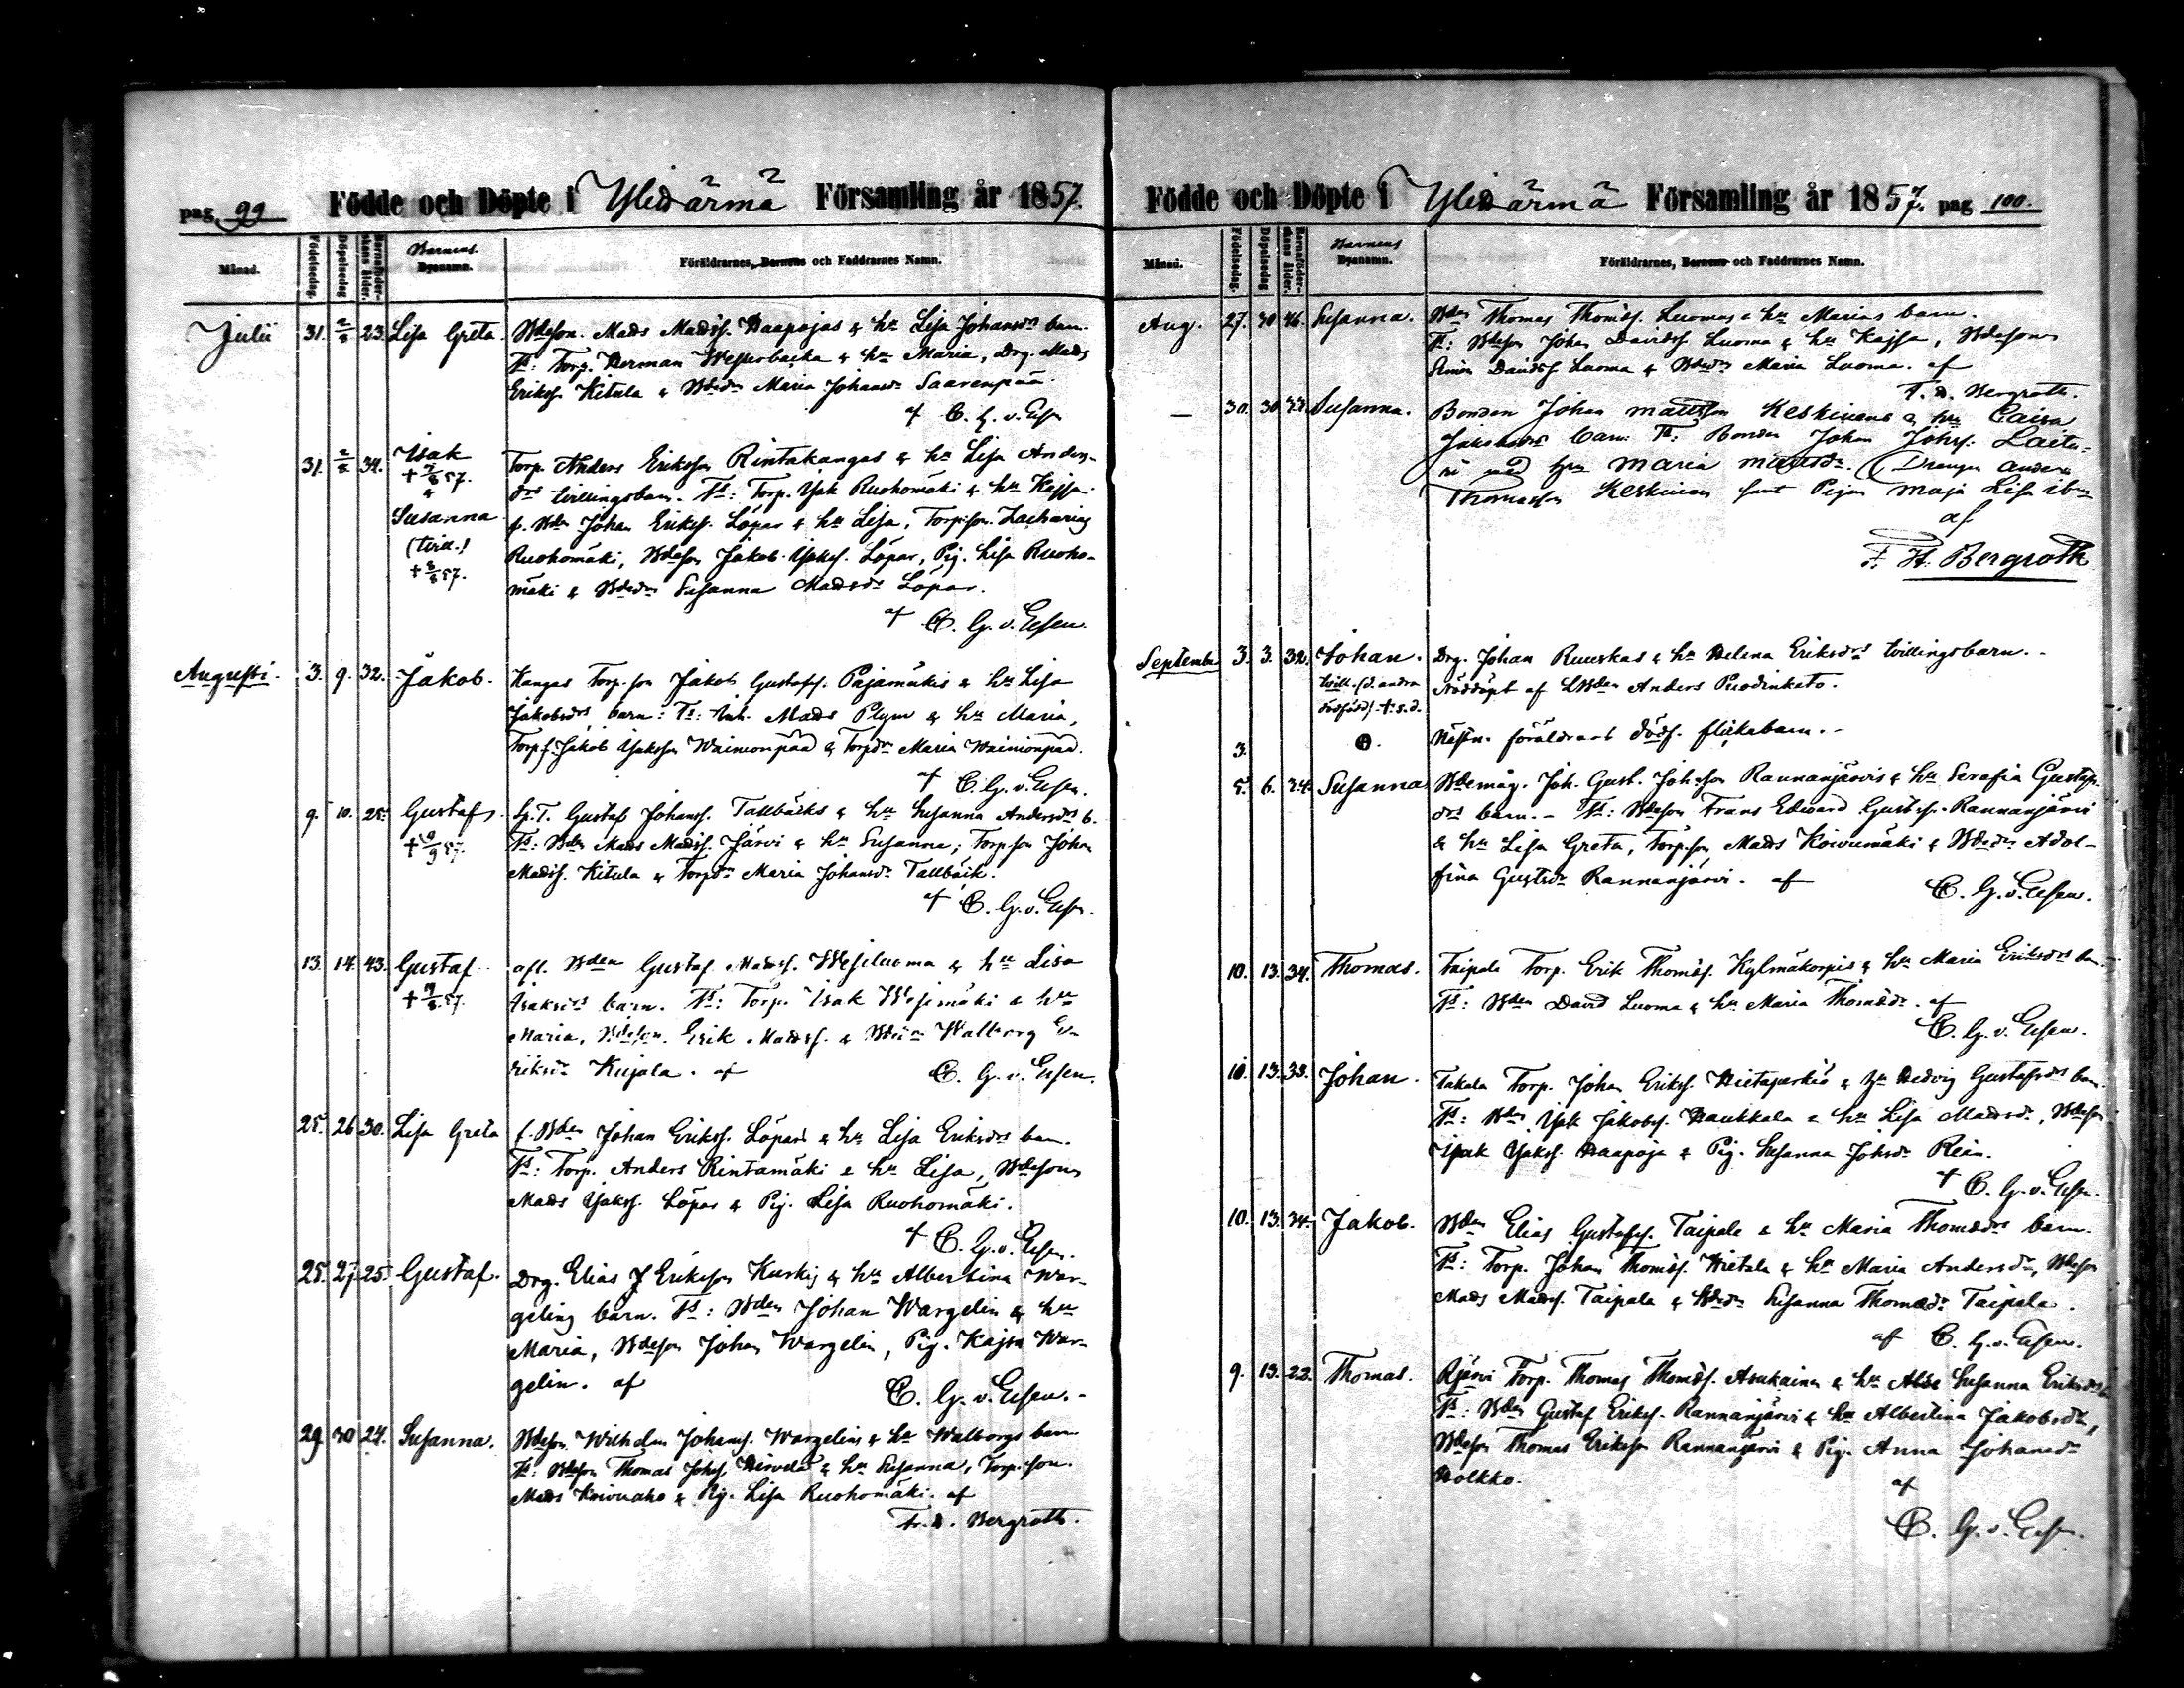 pag. 99 Födde och Döpte i Ylihärmä Församling år 1857.
Månad. Födelsedag. Döpelsedag Barnaföderskans ålder. Barnens Byanamn. Föräldrarnes, Barnens och Faddrarnes Namn.
Julii 31. 2/8 23. Lisa Greta. Bdeson. Mads Madss. Haapojas & hu Lisa Johansdrs barn.
Ts: Torp. Herman Westerbacka & hu Maria, Drg. Mads
Erikss. Kitula & Bdedr Maria Johansdr Saarenpää.
af C. G. v. Essen
31. 2/8 34. Isak Torp. Anders Eriksson Rintakangas & hu Lisa Anders-
+ 57. & drs tvillingsbarn. Ts: Torp. Isak Ruohomäki & hu Kajsa.
Susanna f. Bden Johan Erikss. Löpar & hu Lisa, Torpson. Zacharias
(tvill.) Ruohomäki, Bdeson Jakob Isakss. Löpar, Pig. Lisa Ruoho-
+ 8/8 57. mäki & Bdedr Susanna Madsdr Löpar.
af C. G. v. Essen.
Augusti. 3. 9. 32. Jakob. Kangas Torp. son Jakob Gustafs. Pajamäkis & hu Lisa
Jakobsdrs barn: Ts: Inh. Mads Plym & hu Maria,
Torps. Jakob Isaksson Wainionpää & Torpdr Maria Wainionpää.
af C. G. v. Essen.
9. 10. 25. Gustaf. Sp.T. Gustaf Johanss. Tallbacks & hu Susanna Andersdrs b.
+ 9/9 57. Ts: Bden Mads Madss. Järvi & hu Susanna, Torpson Johan
Madss. Kitula & Torpdr Maria Johansdr Tallback.
af C. G. v. Essn.
13. 14. 43. Gustaf afl. Bden Gustaf Madss. Wesiluoma & hu Lisa
+ 57. Isaksdrs barn. Ts: Torp. Isak Wesimäki & hu
Maria, Bdeson. Erik Madss. & Bdedr Walborg
Eriksdr Kujala. af C. G. v. Essen.
25. 26. 30. Lisa Greta f. Bden Johan Erikss. Löpars & hu Lisa Eriksdrs barn.
Ts: Torp. Anders Rintamäki & hu Lisa, Bdeson
Mads Isakss. Löpar & Pig. Lisa Ruohomäki.
af C. G. v. Essen.
25. 27. 25. Gustaf. Drg. Elias J Eriksson Kurkis & hu Albertina War-
gelins barn. Ts: Bden Johan Wargelin & hu
Maria, Bdeson Johan Wargelin, Pig. Kajsa War-
gelin. af C. G. v. Essen.
29. 30 24. Susanna. Bdeson Wilhelm Johanss. Wargelins & hu Walborgs barn
Ts: Bdeson Thomas Johss. Hirvelä & hu Susanna, Torp.son.
Mads Koivuaho & Pig. Lisa Ruohomäki. af
F. H. Bergroth.
Födde och Döpte i Ylihärmä Församling år 1857. pag 100.
Månad. Födelsedag. Döpelsedag Barnaföderskans ålder. Barnens Byanamn. Föräldrarnes, Barnens och Faddrarnes Namn.
Aug. 27. 30 46. Susanna. Bden Thomas Thomass. Luomas & hu Marias barn.
Ts: Bdeson Johan Davidss. Luoma & hu Kajsa, Bdeson
Simon Davidss Luoma & Bdedr Maria Luoma. af
F. H. Bergroth.
— 30. 30 Susanna. Bonden Johan Mattsson Keskinens & hu Caisa
Jakobsdrs barn Ts: Bonden Johan Johss. Laitu-
ri med hu Maria Mattsdr. Drengen Anders
Thomasson Keskinen samt Pigan Maja Lisa ibm
af
F. H. Bergroth
September 3. 3. 32. Johan. Drg. Johan Ruuskas & hu Helena Eriksdrs tvillingsbarn.
tvill. (d. andra Nöddöpt af LBden Anders Puodinkato.
dödfödd) + s.d.
3. Nästn. föräldrars dödf. flickebarn.
5. 6. 24. Susanna Bdemåg. Joh. Gust. Johsson Rannanjärvis & hu Serafia Gustafs-
drs barn. Ts: Bdeson Frans Edward Gustfss. Rannanjärvi
& hu Lisa Greta, Torpson Mads Koivumäki & Bdedr Adol-
fina Gustdr Rannanjärvi. af C. G. v. Essen.
10. 13. 34. Thomas. Taipale Torp. Erik Thomass. Kylmäkorpis & hu Maria Eriksdrs barn.
Ts: Bden David Luoma & hu Maria Thomasdr. af
C. G. v. Essen.
10. 13. 33. Johan. Takala Torp. Johan Erikss. Hietajärkis & hu Hedvig Gustafsdrs barn.
Ts: Bden Isak Jakobss. Haukkala & hu Lisa Madsdr., Bdeson
Isak Isakss. Haapoja & Pig. Susanna Johsdr Rein.
af C. G. v. Essen.
10. 13. 34. Jakob. Bden Elias Gustafss. Taipale & hu Maria Thomasdrs barn.
Ts: Torp. Johan Thomass. Hietala & hu Maria Andersdr, Bdeson
Mads Madss. Taipale & Bdedr Susanna Thomasdr Taipale.
af C. G. v. Essen.
9. 13. 22. Thomas. Rjärvi Torp. Thomas Thomass. Asukainen & hu Susanna Eriksdrs
Ts: Bden Gustaf Erikss. Rannanjärvi & hu Albertina Jakobsdr,
Bdeson Thomas Eriksson Rannanjärvi & Pig. Anna Johansdr
Holkko. af
C. G. v. Essn.